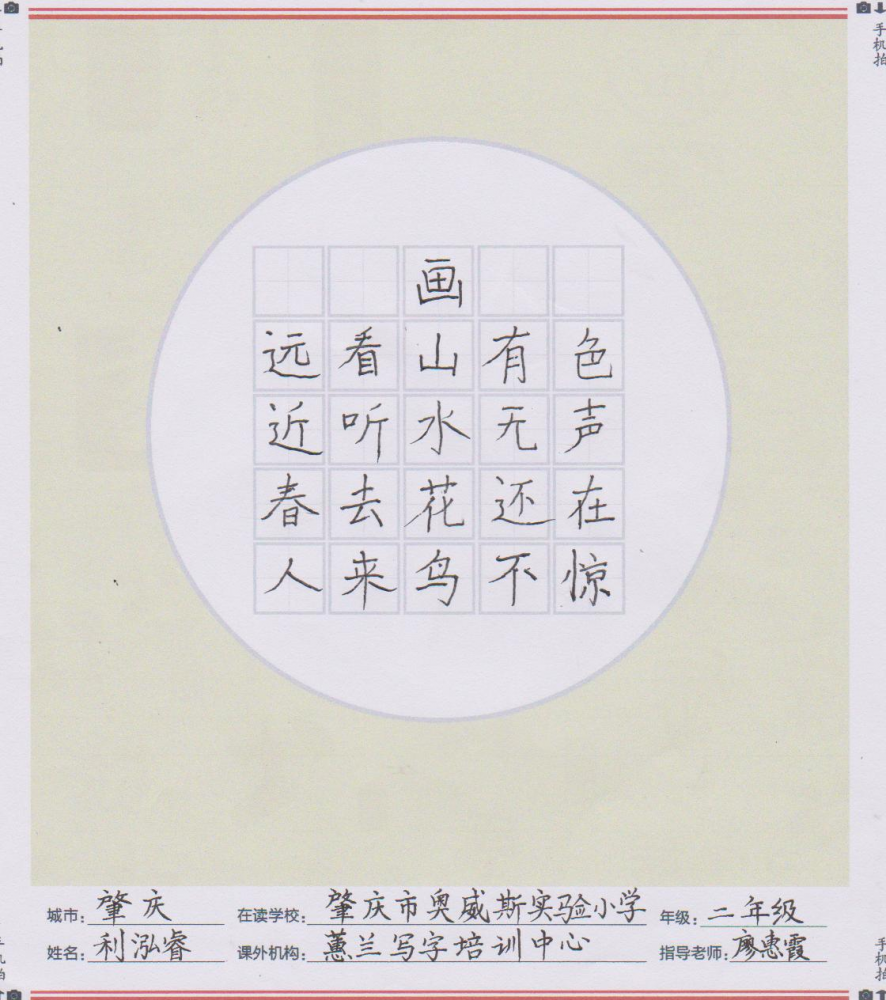 手机拍
画
远看山有色
近听水无声
春去花还在
人来鸟不惊
城市: 肇庆 在读学校: 肇庆市奥威斯实验小学 年级: 二年级
姓名: 利泓睿 课外机构: 蕙兰写字培训中心 指导老师: 廖惠霞
手机拍